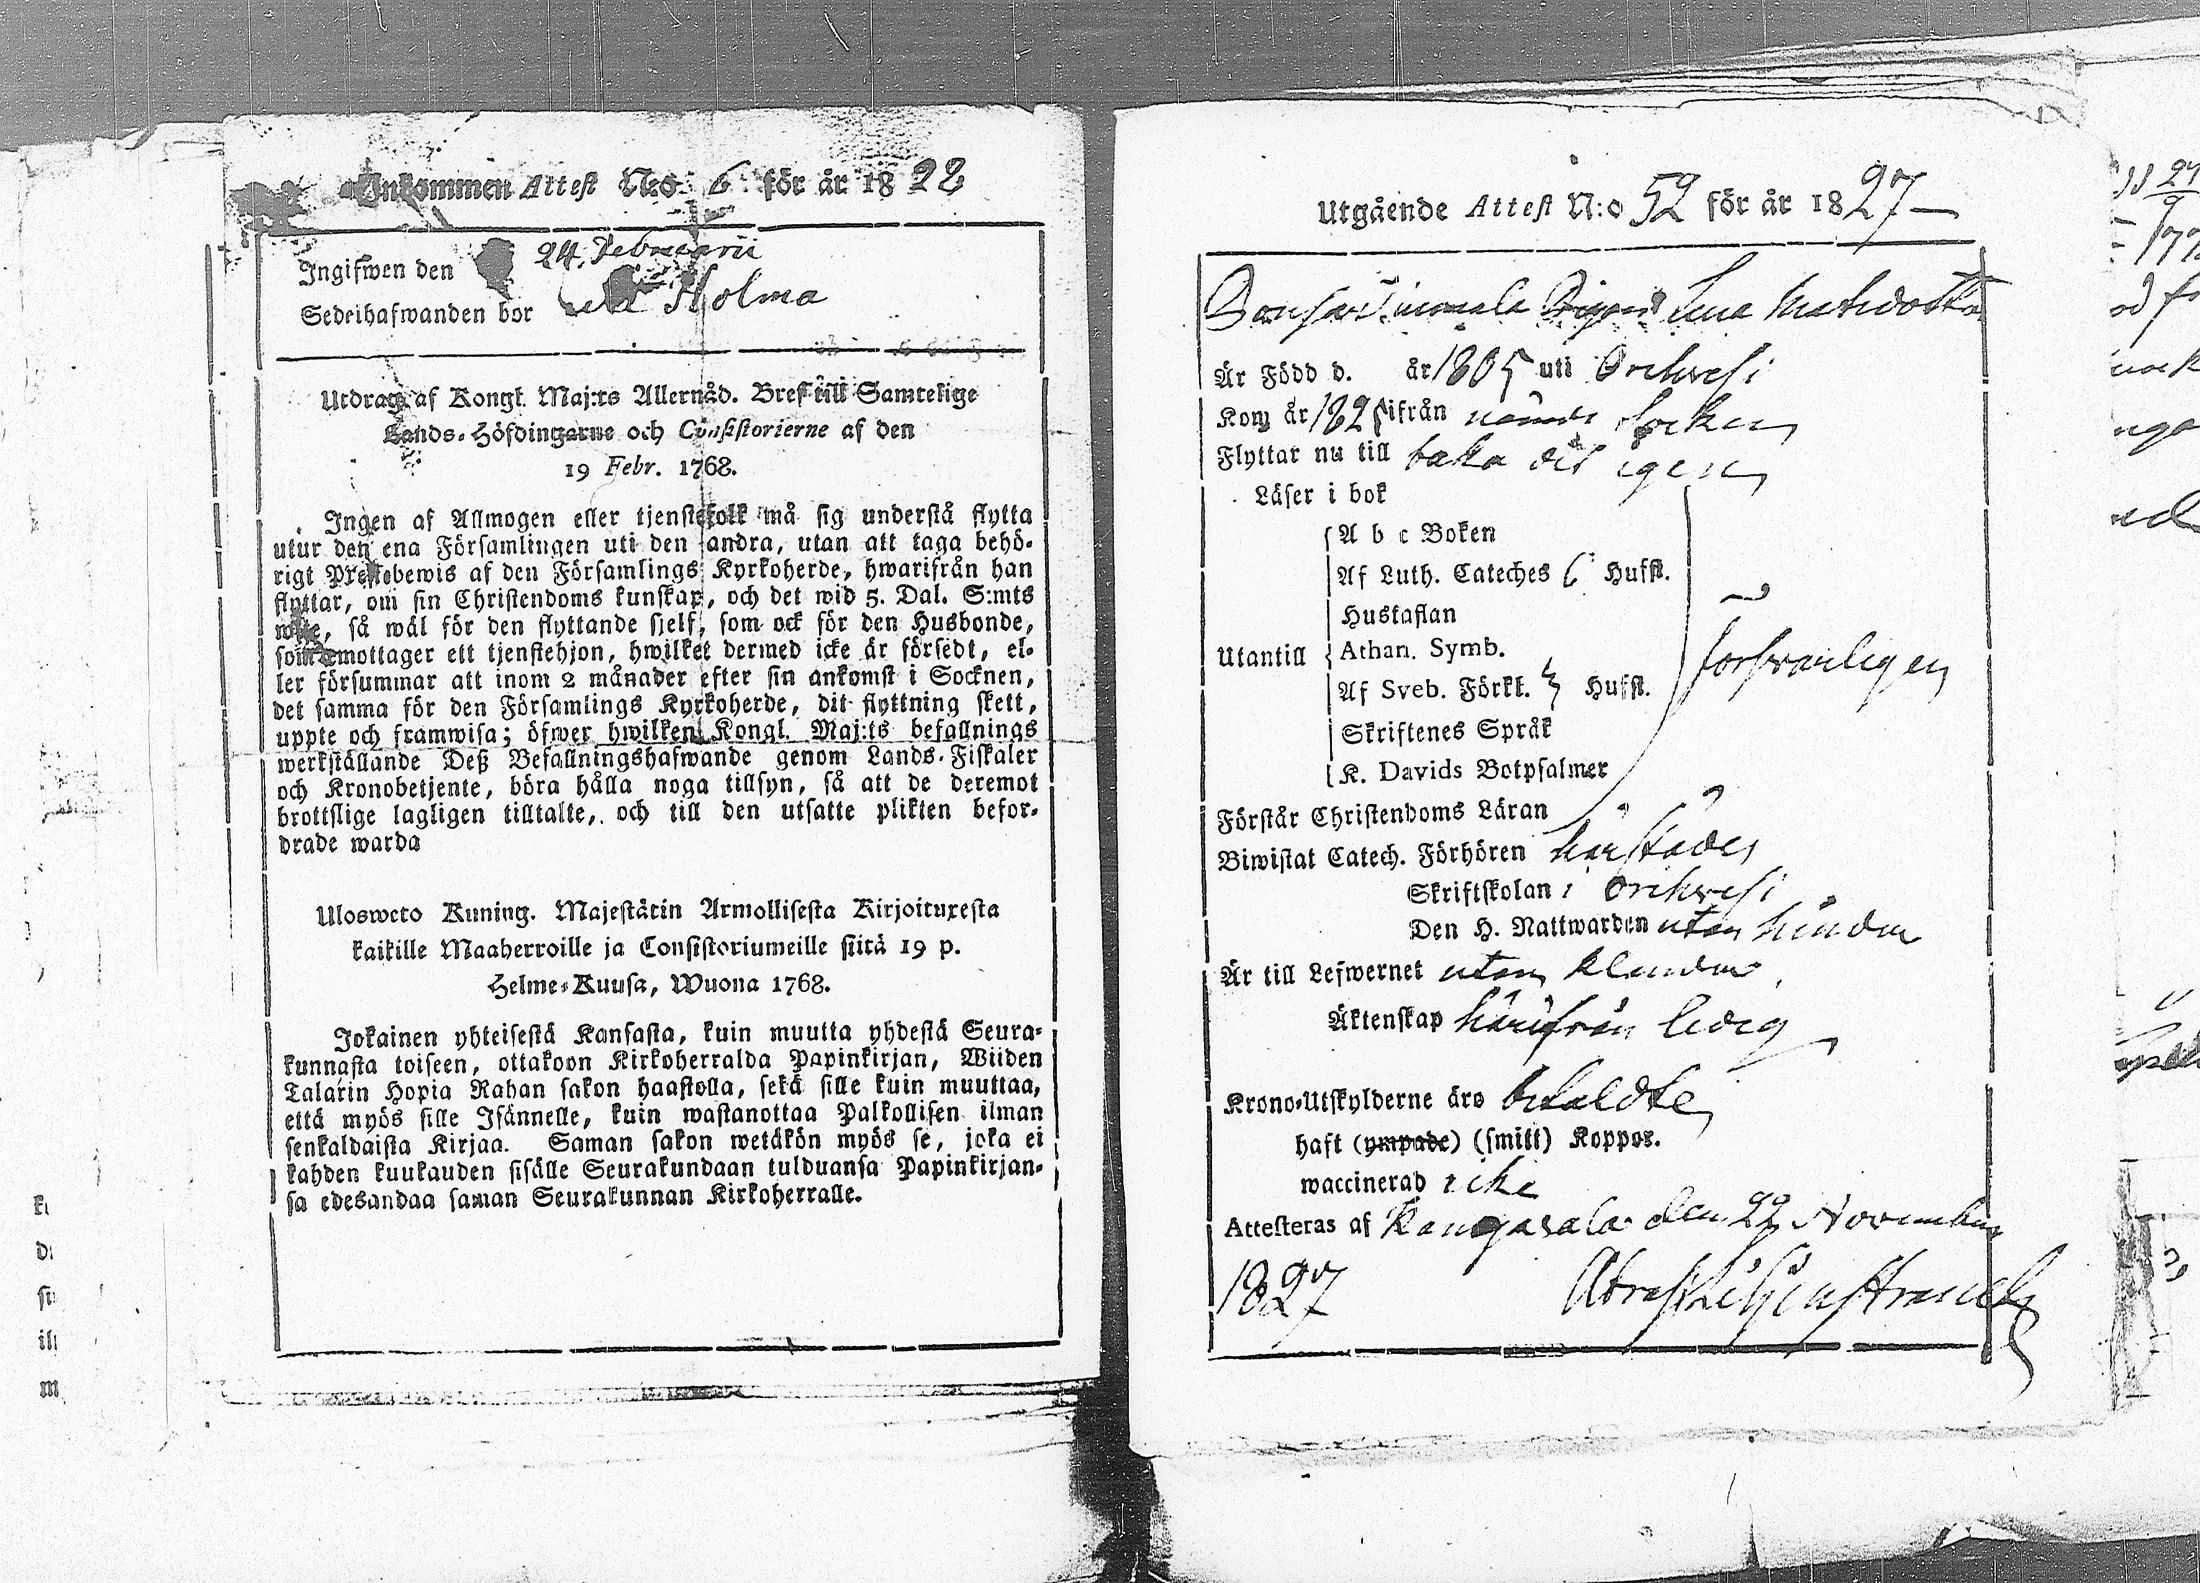 Inkommen Attest N:o 6 för år 1828
Ingifwen den 24 Februarii
Sedelhafwanden bor Holma
Utdrag af Kongl. Maj:ts Allernåd. Bref till Samtelige
Lands-Höfdingarne och Consistorierne af den
19 Febr. 1768.
Ingen af Allmogen eller tjenstefolk må sig understå flytta
utur den ena Församlingen uti den andra, utan att taga behö-
rigt Prestebewis af den Församlings Kyrkoherde, hwarifrån han
flyttar, om sin Christendoms kunskap, och det wid 5. Dal. S:mts
wite, så wäl för den flyttande sjelf, som ock för den Husbonde,
som emottager ett tjenstehjon, hwilket dermed icke är försedt, el-
ler försummar att inom 2 månader efter sin ankomst i Socknen,
det samma för den Församlings Kyrkoherde, dit flyttning skett,
uppte och framwisa; öfwer hwilken Kongl. Maj:ts befallnings
werkställande Deß Befallningshafwande genom Lands-Fiskaler
och Kronobetjente, böra hålla noga tillsyn, så att de deremot
brottslige lagligen tilltalte, och till den utsatte plikten befor-
drade warda
Ulosweto Kuning. Majestätin Armollisesta Kirjoituxesta
kaikille Maaherroille ja Consistoriumeille siitä 19 p.
Helme-Kuusa, Wuona 1768.
Jokainen yhteisestä Kansasta, kuin muutta yhdestä Seura-
kunnasta toiseen, ottakoon Kirkoherralda Papinkirjan, Wiiden
Talarin Hopia Rahan sakon haastolla, sekä sille kuin muuttaa,
että myös sille Isännelle, kuin wastanottaa Palkollisen ilman
senkaldaista Kirjaa. Saman sakon wetäkön myös se, joka ei
kahden kuukauden sisälle Seurakundaan tulduansa Papinkirjan-
sa edesandaa saman Seurakunnan Kirkoherralle.
Utgående Attest N:o 52 för år 1827
Pigan Lena Matsdotter
Är Född d. år 1805 uti Orihwesi
Kom år 182 ifrån nämde Socken
Flyttar nu till baka dit igen
Läser i bok
A b c Boken
Af Luth. Cateches 6 Hufst.
Hustaflan
Utantill Athan. Symb. försvarligen
Af Sveb. Förkl. 3 Hufst.
Skriftenes Språk
K. Davids Botpsalmer
Förstår Christendoms Läran
Biwistat Catech. Förhören härstädes
Skriftskolan i Orihwesi
Den H. Nattwarden utan hinder
Är till Lefwernet utan klander
Äktenskap härifrån ledig
Krono-Utskylderne äro betaldte
haft (ympade) (smitt) Koppor.
waccinerad icke
Attesteras af Kangasala den 22 November
1827